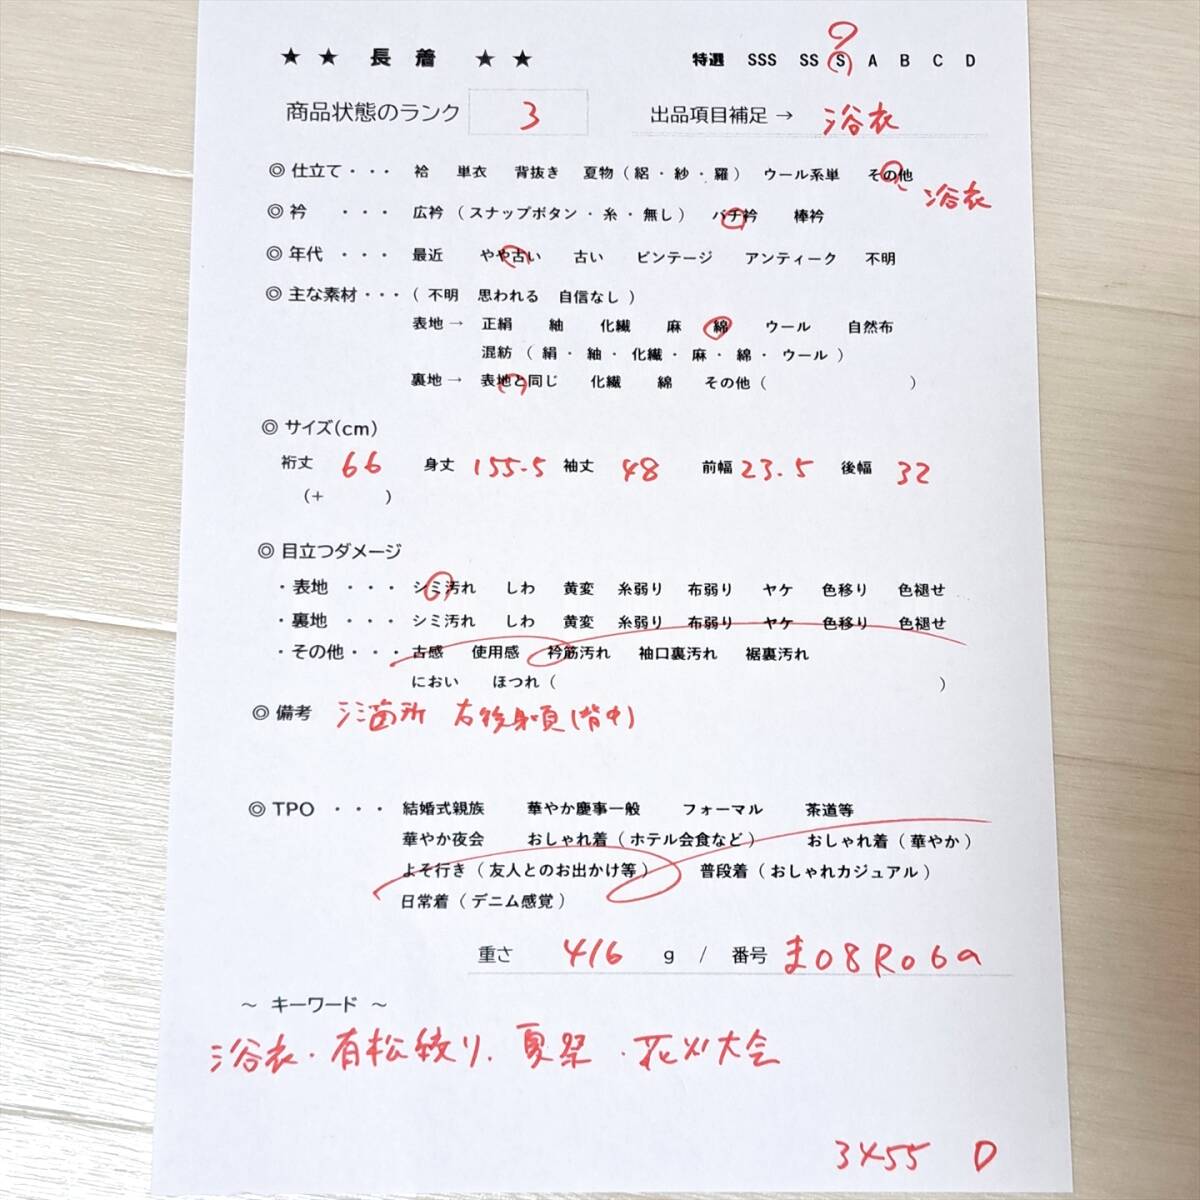 ★ ★ 長 着 ★ ★ 特選 SSS SS S A B C D
商品状態のランク 3 出品項目補足 → 浴衣
◎ 仕立て・・・ 袷 単衣 背抜き 夏物（絽・紗・羅） ウール系単 その他 浴衣
◎ 衿 ・・・ 広衿（スナップボタン・糸・無し） バチ衿 棒衿
◎ 年代 ・・・ 最近 やや古い 古い ビンテージ アンティーク 不明
◎ 主な素材・・・（不明 思われる 自信なし）
表地→ 正絹 紬 化繊 麻 綿 ウール 自然布
混紡（絹・紬・化繊・麻・綿・ウール）
裏地→ 表地と同じ 化繊 綿 その他（ ）
◎ サイズ(cm)
裄丈 66 身丈 155.5 袖丈 48 前幅 23.5 後幅 32
（＋ ）
◎ 目立つダメージ
・表地 ・・・ シミ汚れ しわ 黄変 糸弱り 布弱り ヤケ 色移り 色褪せ
・裏地 ・・・ シミ汚れ しわ 黄変 糸弱り 布弱り ヤケ 色移り 色褪せ
・その他・・・ 古感 使用感 衿筋汚れ 袖口裏汚れ 裾裏汚れ
におい ほつれ（ ）
◎ 備考 シミ箇所 右後身頃(背中)
◎ TPO ・・・ 結婚式親族 華やか慶事一般 フォーマル 茶道等
華やか夜会 おしゃれ着（ホテル会食など） おしゃれ着（華やか）
よそ行き（友人とのお出かけ等） 普段着（おしゃれカジュアル）
日常着（デニム感覚）
重さ 416 g / 番号 ま08R06a
～ キーワード ～
浴衣・有松絞り・夏祭・花火大会
3455 D